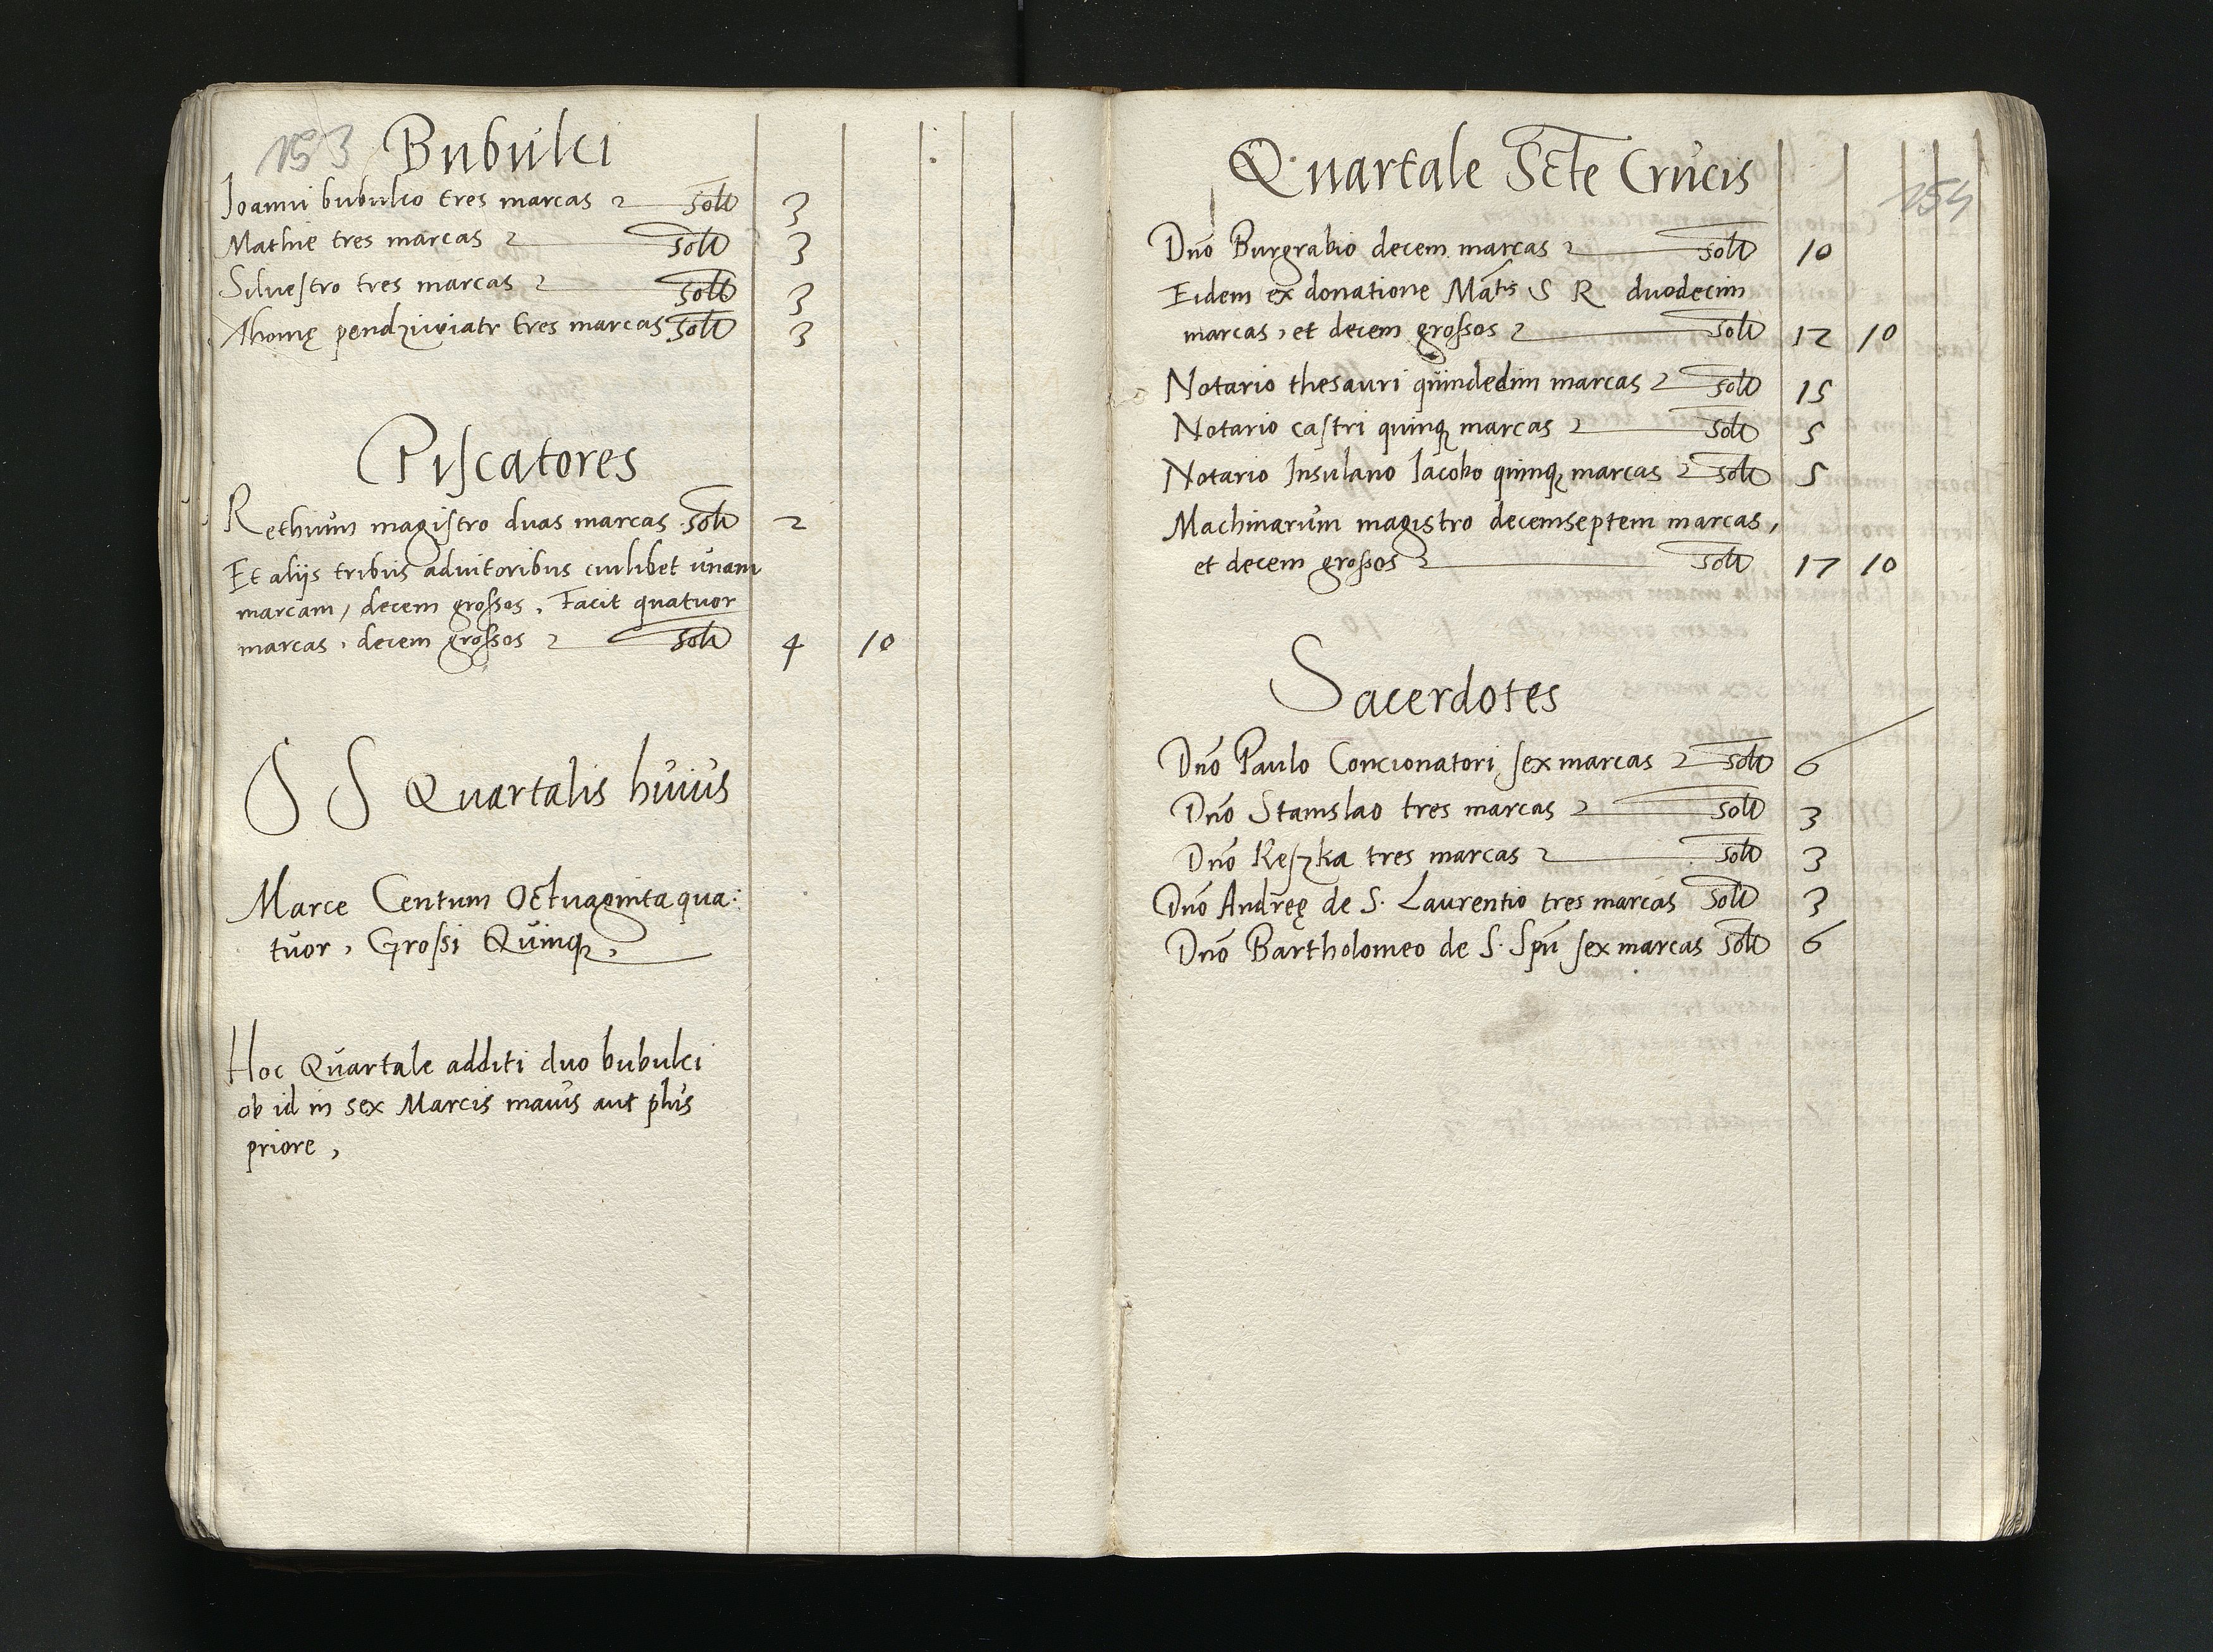 153 Bubulci
Joanni bubulco tres marcas solt 3
Mathie tres marcas solt 3
Siluestro tres marcas solt 3
Thomę pendziwiatr tres marcas solt 3
Piscatores
Rethium magistro duas marcas solt 2
Et aliis tribus adiutoribus cuilibet unam
marcam, decem grossos. Facit quatuor
marcas, decem grossos solt 4 10
S S Quartalis huius
Marce Centum Octuaginta qua:
tuor, Grossi Quinq,
Hoc Quartale additi duo bubulci
ob id in sex Marcis maius aut plus
priore,
254
Quartale Scte Crucis
Dno Burgrabio decem marcas solt 10
Eidem ex donatione Matis S R duodecim
marcas, et decem grossos solt 12 10
Notario thesauri quindedim marcas solt 15
Notario castri quinq marcas solt 5
Notario Insulano Iacobo quinq marcas solt 5
Machinarum magistro decemseptem marcas,
et decem grossos solt 17 10
Sacerdotes
Dno Paulo Concionatori sex marcas solt 6
Dno Stanislao tres marcas solt 3
Dno Keszka tres marcas solt 3
Dno Andreę de S. Laurentio tres marcas solt 3
Dno Bartholomeo de S. Spu sex marcas solt 6